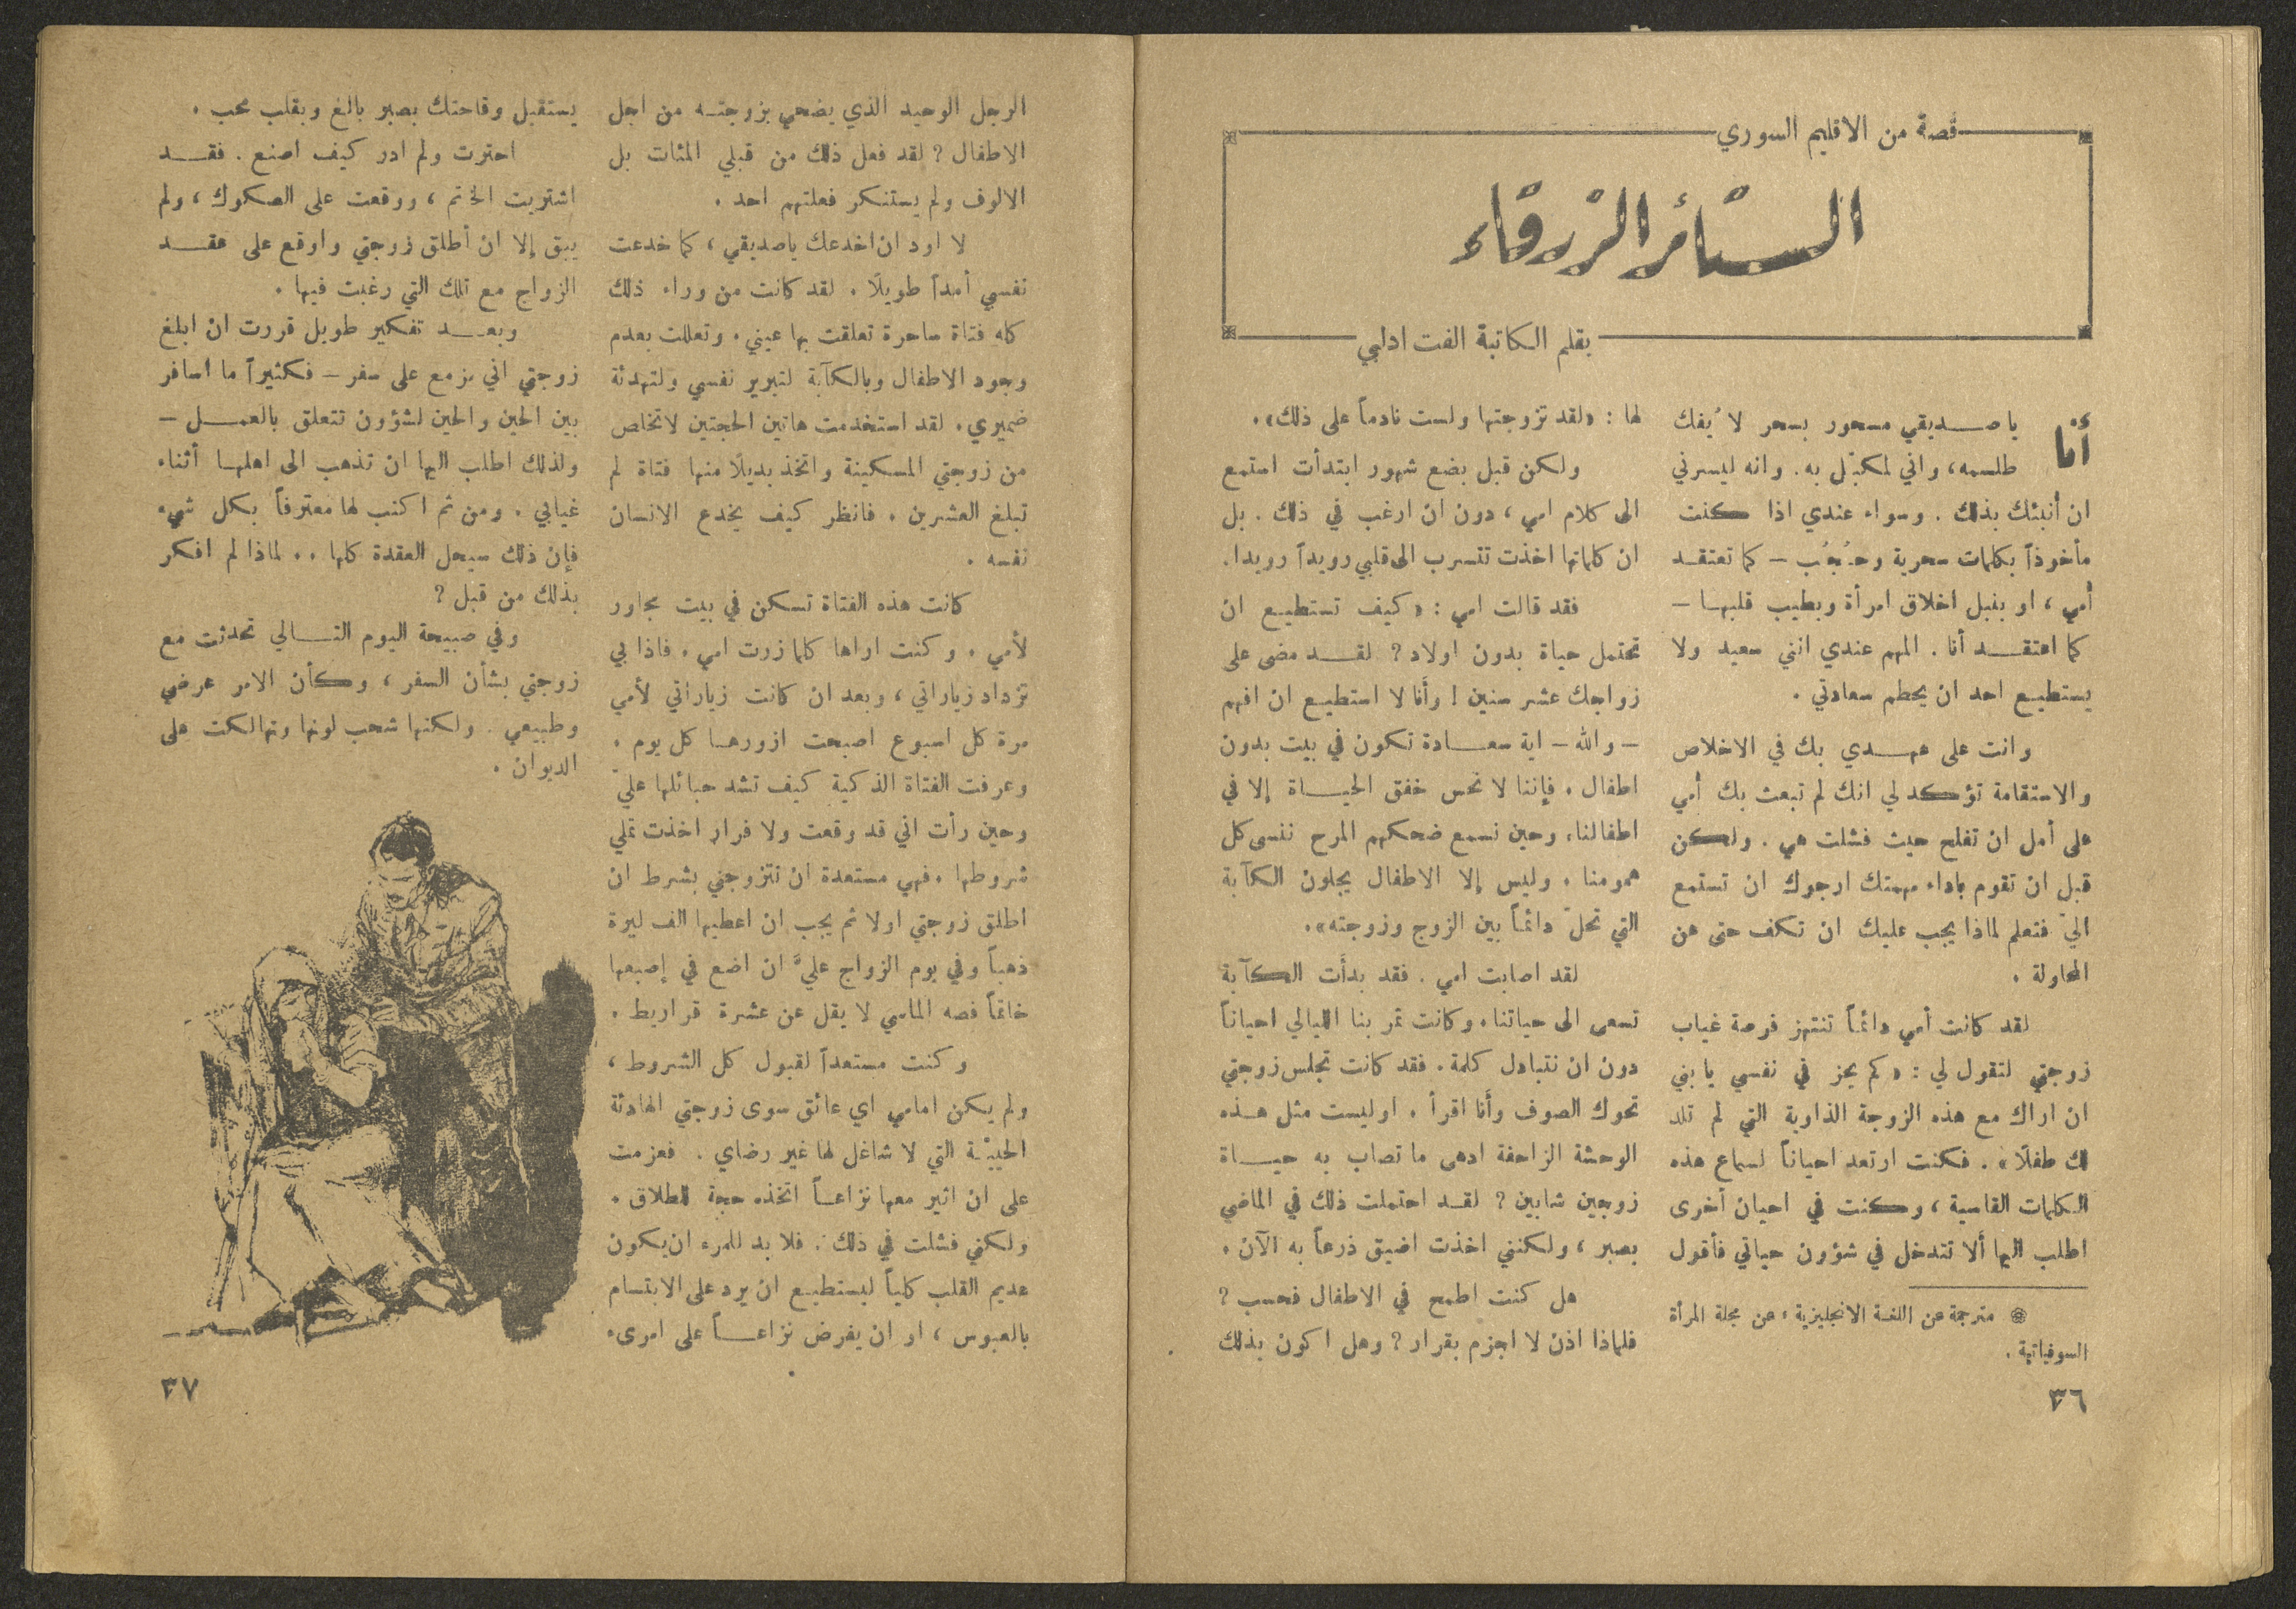 قصة من الاقليم السوري
الستائر الزرقاء
بقلم الكاتبة الفت ادلبي
أنا يا صديقي مسحور بسحر لا ُيفك
طلسمه، واني لمكبّل به. وانه ليسرني
ان أنبئك بذلك . وسواء عندي اذا كنت
مأخوذاً بكلمات سحرية وحُجُب – كما تعتقد
أمي ، او بنبل اخلاق امرأة وبطيب قلبها –
كما اعتقد أنا . المهم عندي انني سعيد ولا
يستطيع احد ان يحطم سعادتي .
وانت على عهدي بك في الاخلاص
والاستقامة تؤكد لي انك لم تبعث بك أمي
على أمل ان تفلح حيث فشلت هي . ولكن
قبل ان تقوم باداء مهمتك ارجوك ان تستمع
اليّ فتعلم لماذا يجب عليك ان تكف حتى عن
المحاولة .
لقد كانت أمي دائماً تنتهز فرصة غياب
زوجتي لتقول لي : «كم يحز في نفسي يا بني
ان اراك مع هذه الزوجة الذاوية التي لم تلد
لك طفلًا» . فكنت ارتعد احياناً لسماع هذه
الكلمات القاسية ، وكنت في احيان أخرى
اطلب اليها ألا تتدخل في شؤون حياتي فأقول
مترجمة عن اللغة الانجليزية ، عن مجلة المرأة
السوفياتية .
٣٦
لها : «لقد تزوجتها ولست نادماً على ذلك» .
ولكن قبل بضع شهور ابتدأت استمع
الى كلام امي ، دون ان ارغب في ذلك . بل
ان كلماتها اخذت تتسرب الى قلبي رويداً رويدا.
فقد قالت امي : «كيف تستطيع ان
تحتمل حياة بدون اولاد ? لقد مضى على
زواجك عشر سنين ! وأنا لا استطيع ان افهم
– والله – اية سعادة تكون في بيت بدون
اطفال . فإننا لا نحس خفق الحياة إلا في
اطفالنا، وحين نسمع ضحكهم المرح ننسى كل
همومنا . وليس إلا الاطفال يجلون الكآبة
التي تحلّ دائماً بين الزوج وزوجته» .
لقد اصابت امي . فقد بدأت الكآبة
تسعى الى حياتنا، وكانت تمر بنا الليالي احياناً
دون ان نتبادل كلمة . فقد كانت تجلس زوجتي
تحوك الصوف وأنا اقرأ . اوليست مثل هذه
الوحشة الزاحفة ادهى ما تصاب به حياة
زوجين شابين ? لقد احتملت ذلك في الماضي
بصبر ، ولكنني اخذت اضيق ذرعاً به الآن .
هل كنت اطمح في الاطفال فحسب ?
فلماذا اذن لا اجزم بقرار ? وهل اكون بذلك
الرجل الوحيد الذي يضحي بزوجته من اجل
الاطفال ? لقد فعل ذلك من قبلي المئات بل
الالوف ولم يستنكر فعلتهم احد .
لا اود ان اخدعك ياصديقي ، كما خدعت
نفسي أمداً طويلًا . لقد كانت من وراء ذلك
كله فتاة ساحرة تعلقت بها عيني . وتعللت بعدم
وجود الاطفال وبالكآبة لتبرير نفسي ولتهدئة
ضميري . لقد استخدمت هاتين الحجتين لاتخلص
من زوجتي المسكينة واتخذ بديلًا منها فتاة لم
تبلغ العشرين . فانظر كيف يخدع الانسان
نفسه .
كانت هذه الفتاة تسكن في بيت مجاور
لأمي . وكنت اراها كلما زرت امي . فاذا بي
تزداد زياراتي ، وبعد ان كانت زياراتي لأمي
مرة كل اسبوع اصبحت ازورها كل يوم .
وعرفت الفتاة الذكية كيف تشد حبائلها عليّ
وحين رأت اني قد وقعت ولا فرار اخذت تملي
شروطها . فهي مستعدة ان تتزوجني بشرط ان
اطلق زوجتي اولا ثم يجب ان اعطيها الف ليرة
ذهباً وفي يوم الزواج عليَّ ان اضع في إصبعها
خاتماً فصه الماسي لا يقل عن عشرة قراريط .
وكنت مستعداً لقبول كل الشروط ،
ولم يكن امامي اي عائق سوى زوجتي الهادئة
الحييّة التي لا شاغل لها غير رضاي . فعزمت
على ان اثير معها نزاعاً اتخذه حجة للطلاق .
ولكني فشلت في ذلك . فلا بد للمرء ان يكون
عديم القلب كلياً ليستطيع ان يرد على الابتسام
بالعبوس ، او ان يفرض نزاعاً على امرىء
يستقبل وقاحتك بصبر بالغ وبقلب محب .
احترت ولم ادر كيف اصنع . فقد
اشتريت الخاتم ، ووقعت على الصكوك ، ولم
يبق إلا ان أطلق زوجتي واوقع على عقد
الزواج مع تلك التي رغبت فيها .
وبعد تفكير طويل قررت ان ابلغ
زوجتي اني مزمع على سفر – فكثيراً ما اسافر
بين الحين والحين لشؤون تتعلق بالعمل –
ولذلك اطلب اليها ان تذهب الى اهلها أثناء
غيابي . ومن ثم اكتب لها معترفاً بكل شيء
فإن ذلك سيحل العقدة كلها . . لماذا لم افكر
بذلك من قبل ?
وفي صبيحة اليوم التالي تحدثت مع
زوجتي بشأن السفر ، وكأن الامر عرضي
وطبيعي . ولكنها شحب لونها وتهالكت على
الديوان .
٣٧